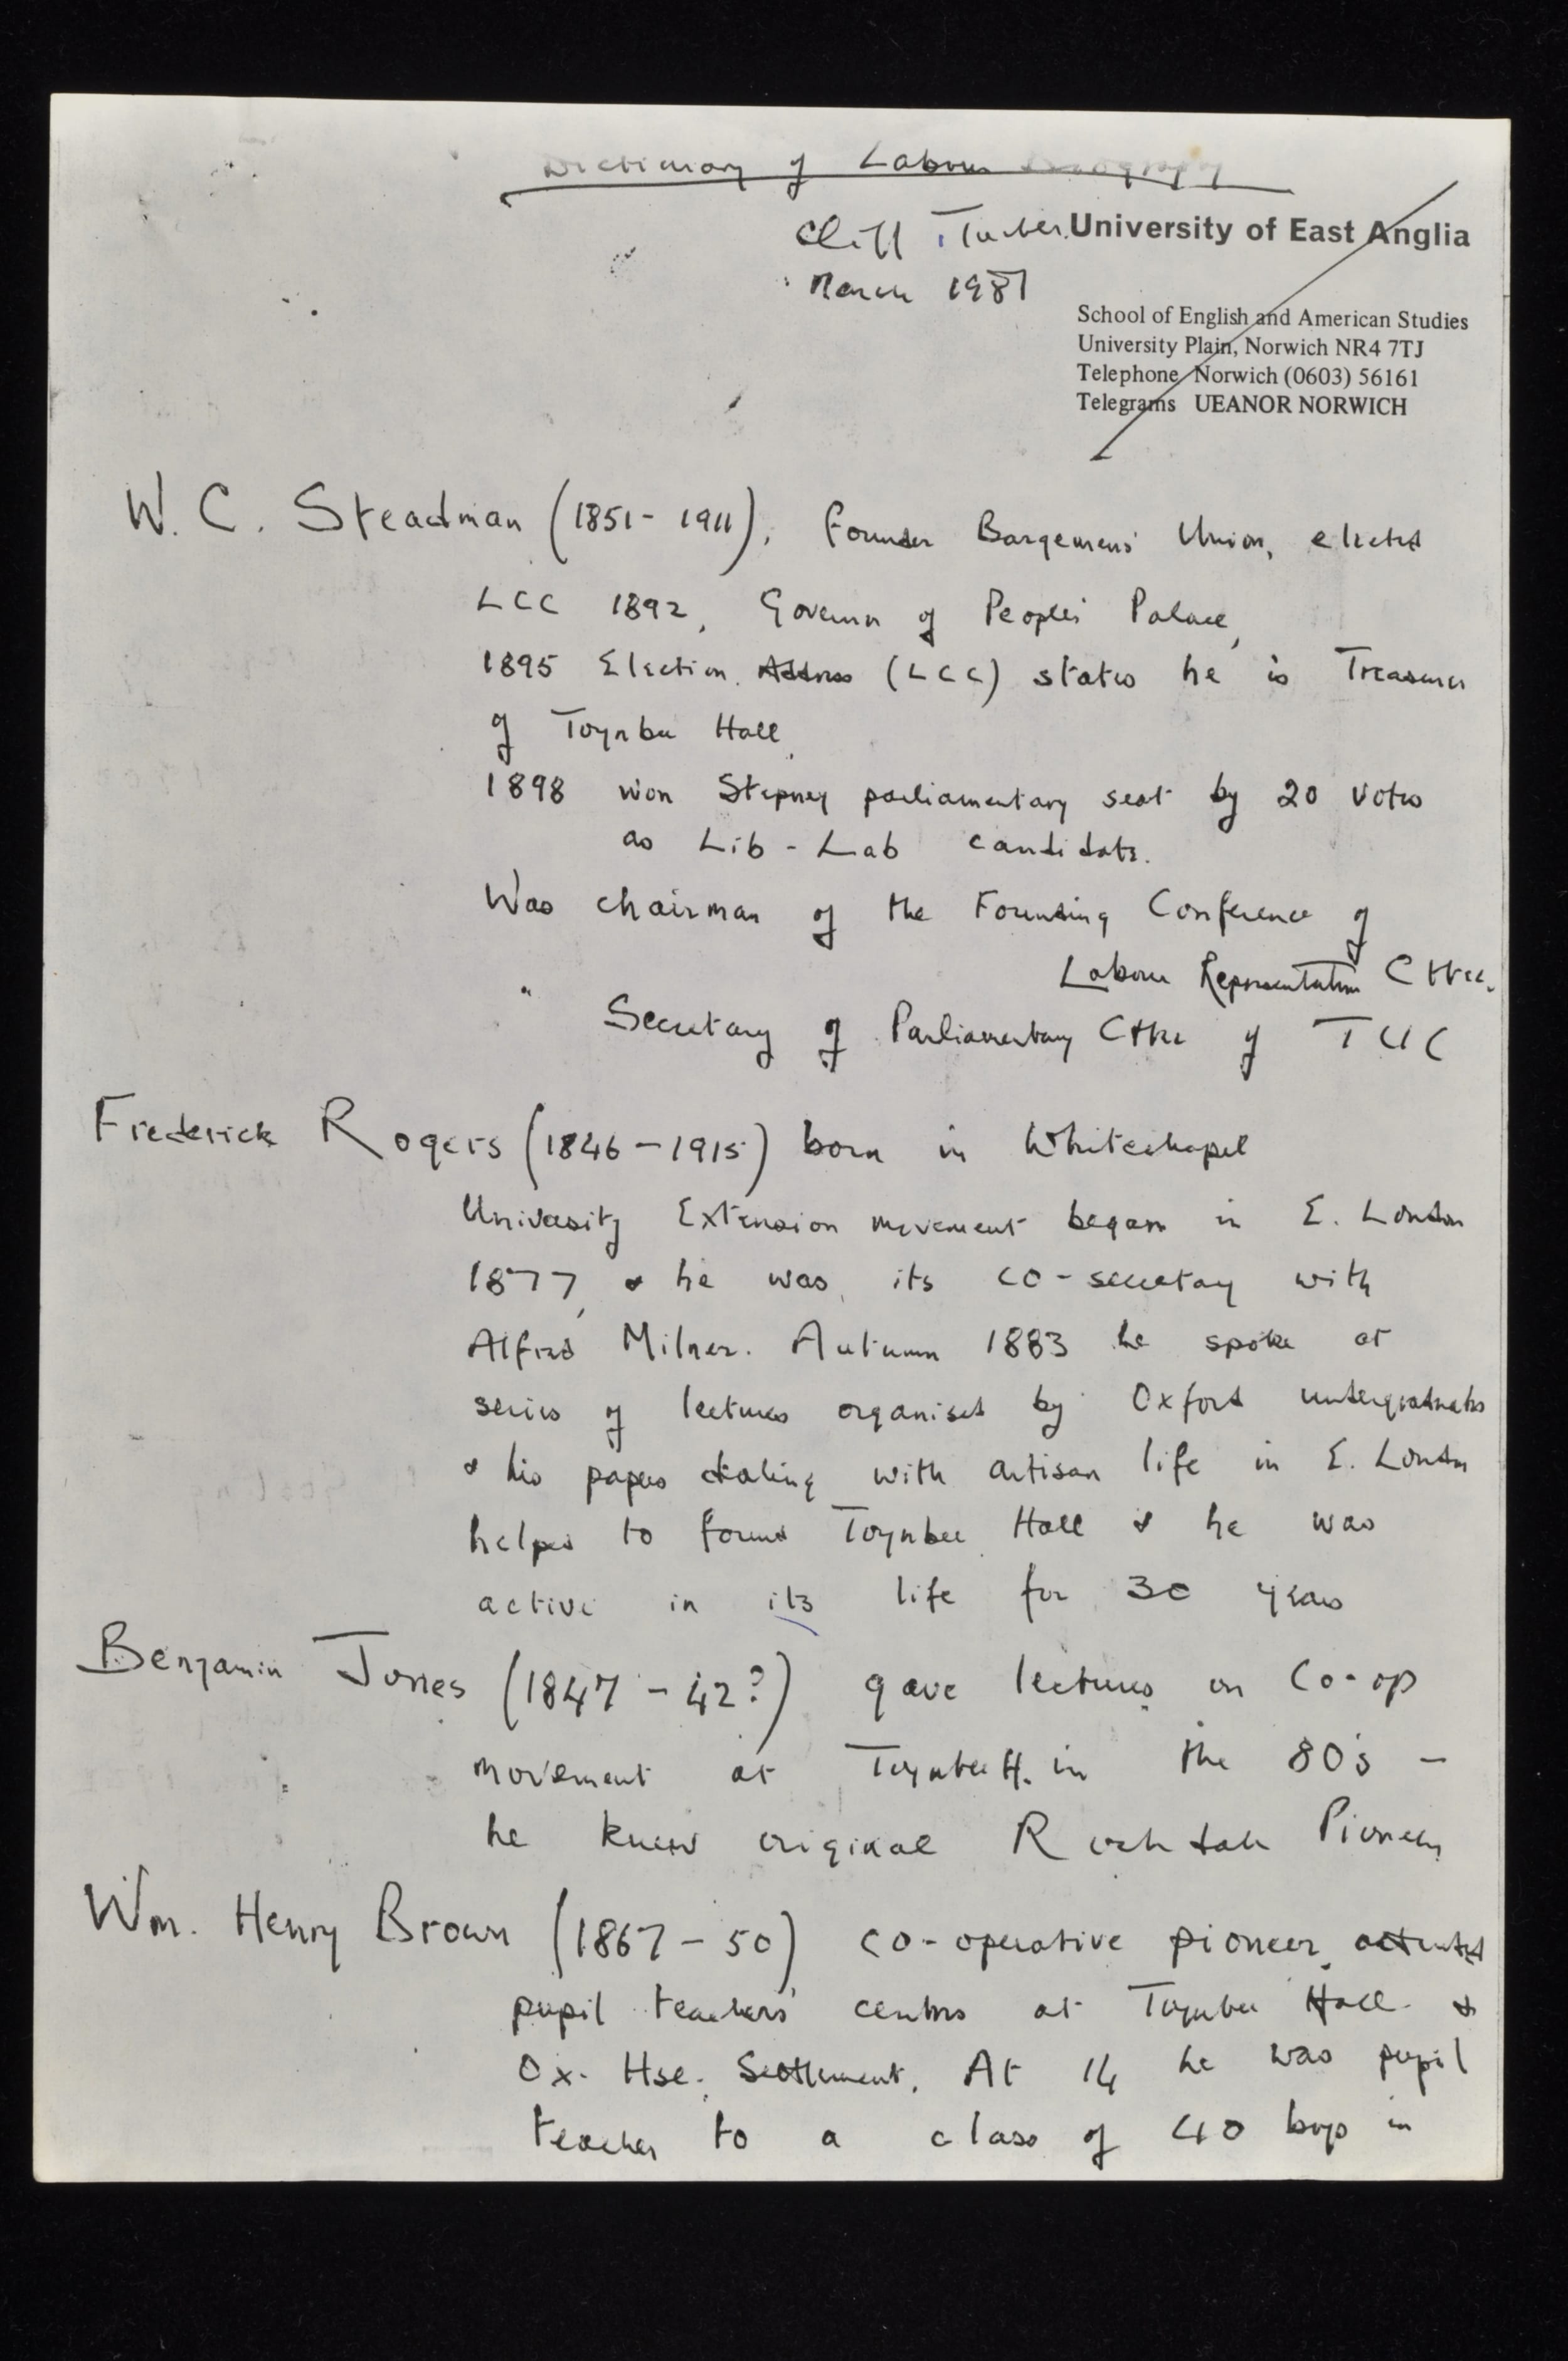 Dictionary of Labour Biography
Cliff Tucker University of East Anglia
March 1981
School of English and American Studies
University Plain, Norwich NR4 7TJ
Telephone Norwich (0603) 56161
Telegrams UEANOR NORWICH
W. C. Steadman (1851 - 1911), Founder Bargemens' Union, elected
LCC 1892, Governor of People's Palace,
1895 Election Address (LCC) states he is Treasurer
of Toynbee Hall.
1898 won Stepney parliamentary seat by 20 votes
as Lib - Lab candidate.
Was chairman of the Founding Conference of
Labour Representation Cttee.
" Secretary of Parliamentary Cttee of TUC
Frederick Rogers (1846 - 1915) born in Whitechapel
University Extension movement began in E. London
1877, & he was its co-secretary with
Alfred Milner. Autumn 1883 he spoke at
series of lectures organised by Oxford undergraduates
& his papers dealing with artisan life in E. London
helped to found Toynbee Hall & he was
active in its life for 30 years
Benjamin Jones (1847 - 42?) gave lectures on Co-op
movement at Toynbee H. in the 80's -
he knew original Rochdale Pioneers
Wm. Henry Brown (1867 - 50) co-operative pioneer, attended
pupil teachers' centres at Toynbee Hall &
Ox. Hse. Settlement. At 14 he was pupil
teacher to a class of 40 boys in